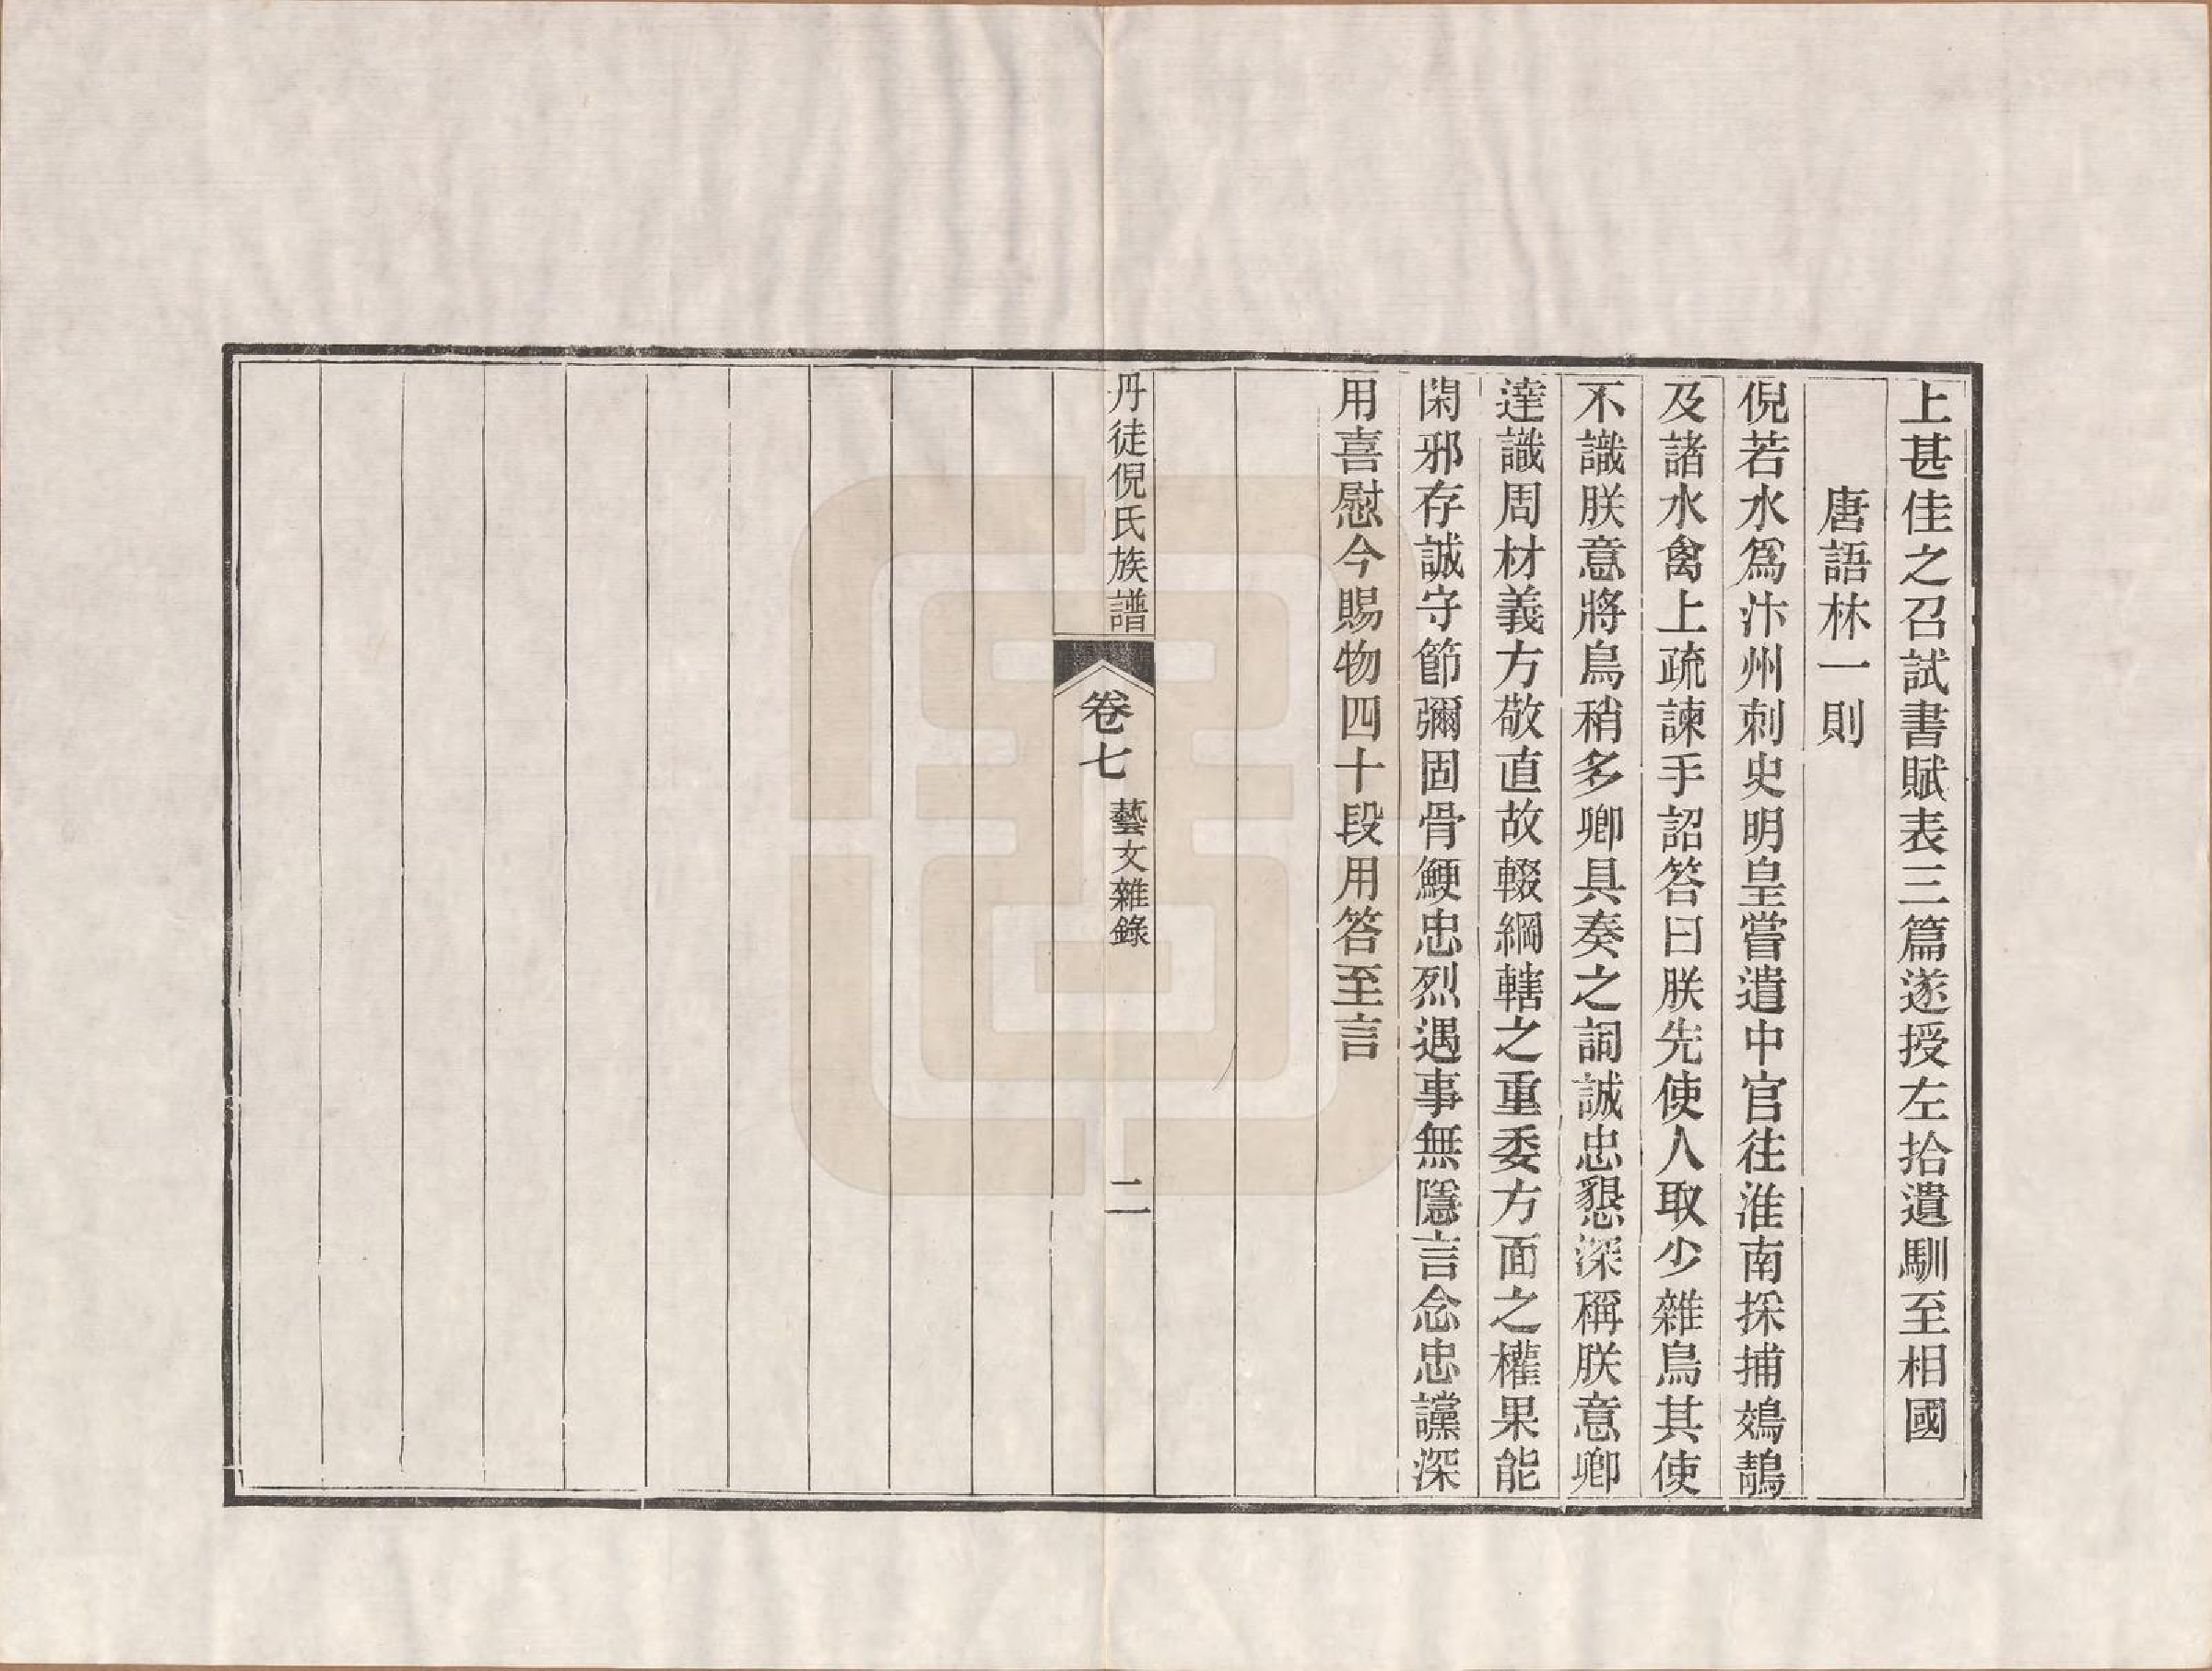 上甚佳之召試書賦表三篇遂授左拾遺馴至相國
唐語林一則
倪若水爲汴州刺史明皇嘗遣中官往淮南採捕鵁鶄
及諸水禽上疏諫手詔答曰朕先使人取少雜鳥其使
不識朕意將鳥稍多卿具奏之詞誠忠懇深稱朕意卿
達識周材義方敬直故輟綱轄之重委方面之權果能
閑邪存誠守節彌固骨鯁忠烈遇事無隱言念忠讜深
用喜慰今賜物四十段用答至言
丹徒倪氏族譜
卷七
藝文雜錄
二